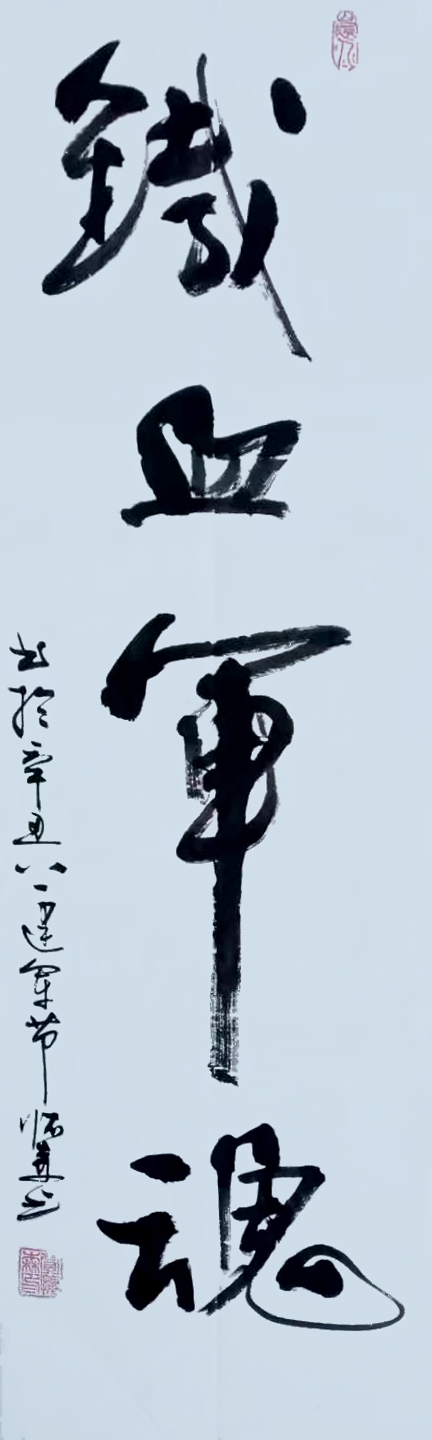 鐵血軍魂
书於辛丑八一建军节